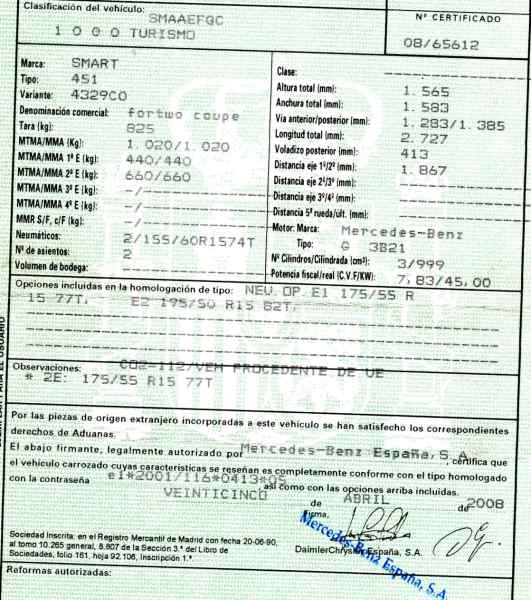 Clasificación del vehículo:
SMAAEFGC
1 0 0 0 TURISMO
Nº CERTIFICADO
08/65612
Marca: SMART
Tipo: 451
Variante: 4329C0
Denominación comercial: fortwo coupe
Tara (kg): 825
MTMA/MMA (Kg): 1.020/1.020
MTMA/MMA 1ª E (kg): 440/440
MTMA/MMA 2ª E (kg): 660/660
MTMA/MMA 3ª E (kg): -/-
MTMA/MMA 4ª E (kg): -/-
MMR S/F, c/F (kg): -/-
Neumáticos: 2/155/60R1574T
Nº de asientos: 2
Volumen de bodega:
Clase:
Altura total (mm): 1.565
Anchura total (mm): 1.583
Vía anterior/posterior (mm): 1.283/1.385
Longitud total (mm): 2.727
Voladizo posterior (mm): 413
Distancia eje 1º/2º (mm): 1.867
Distancia eje 2º/3º (mm):
Distancia eje 3º/4º (mm):
Distancia 5ª rueda/últ. (mm):
Motor: Marca: Mercedes-Benz
Tipo: G 3B21
Nº Cilindros/Cilindrada (cm³): 3/999
Potencia fiscal/real (C.V.F/KW): 7,83/45,00
Opciones incluidas en la homologación de tipo: NEU.OP.E1 175/55 R
15 77T, E2 195/50 R15 82T,
Observaciones: CO2-112/VEH PROCEDENTE DE UE
* 2E: 175/55 R15 77T
Por las piezas de origen extranjero incorporadas a este vehículo se han satisfecho los correspondientes
derechos de Aduanas.
El abajo firmante, legalmente autorizado por Mercedes-Benz España, S.A., certifica que
el vehículo carrozado cuyas características se reseñan es completamente conforme con el tipo homologado
con la contraseña e1*2001/116*0413*05 así como con las opciones arriba incluidas.
VEINTICINCO de ABRIL de 2008
Firma,
Mercedes-Benz España, S.A.
DaimlerChrysler España, S.A.
Sociedad Inscrita: en el Registro Mercantil de Madrid con fecha 20-06-90,
al tomo 10.265 general, 8.807 de la Sección 3.ª del Libro de
Sociedades, folio 161, hoja 92.106, Inscripción 1.ª
Reformas autorizadas: